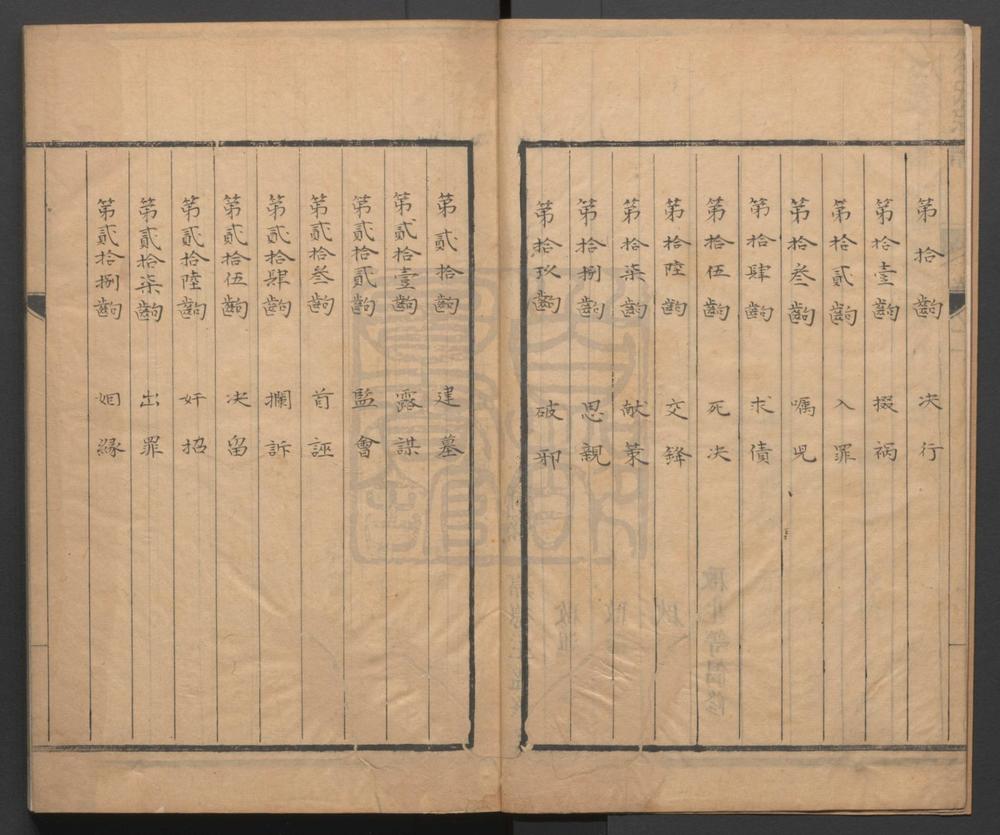 第拾齣 决行
第拾壹齣 掇祸
第拾貳齣 入罪
第拾叁齣 嘱兕
第拾肆齣 求債
第拾伍齣 死决
第拾陸齣 交鋒
第拾柒齣 献策
第拾捌齣 思親
第拾玖齣 破邪
第貳拾齣 建墓
第貳拾壹齣 露謀
第貳拾貳齣 監會
第貳拾叁齣 首誣
第貳拾肆齣 攔訴
第貳拾伍齣 决留
第貳拾陸齣 奸招
第貳拾柒齣 出罪
第貳拾捌齣 姻緣